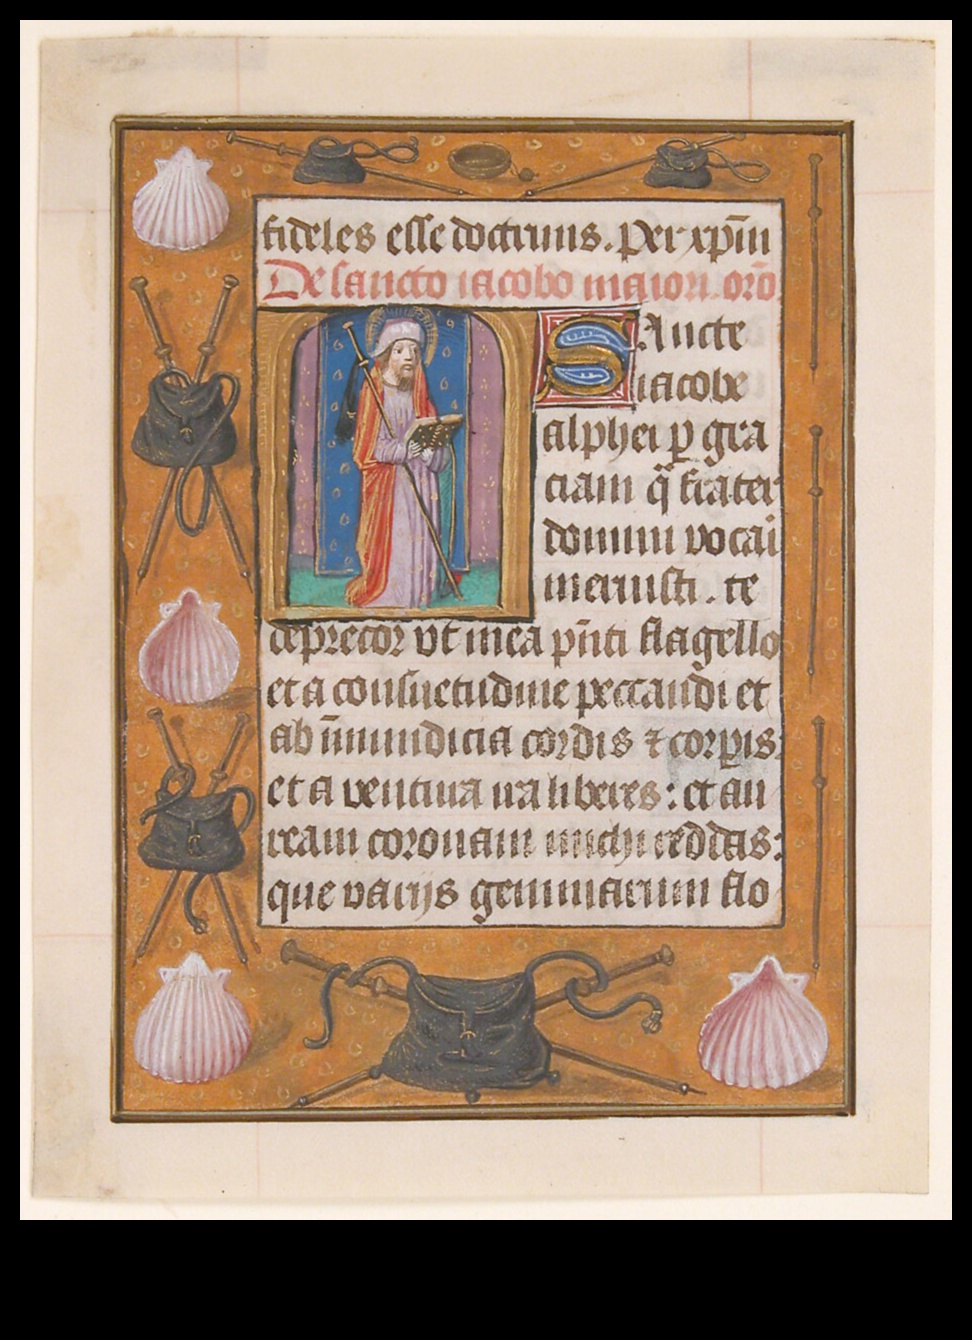 fideles esse doctrinis. Per xp̄m
De sancto iacobo maiori. oro̅
Sancte
iacobe
alphei p̲ gra
ciam q̄ frater
domini vocai
meruisti. te
deprecor vt mea pn̄ti flagello
et a consuetudine peccandi et
ab īmundicia cordis ⁊ corp̲is
et a ventura ira liberes: et au
ream coronam michi reddas:
que varijs gemmarum flo